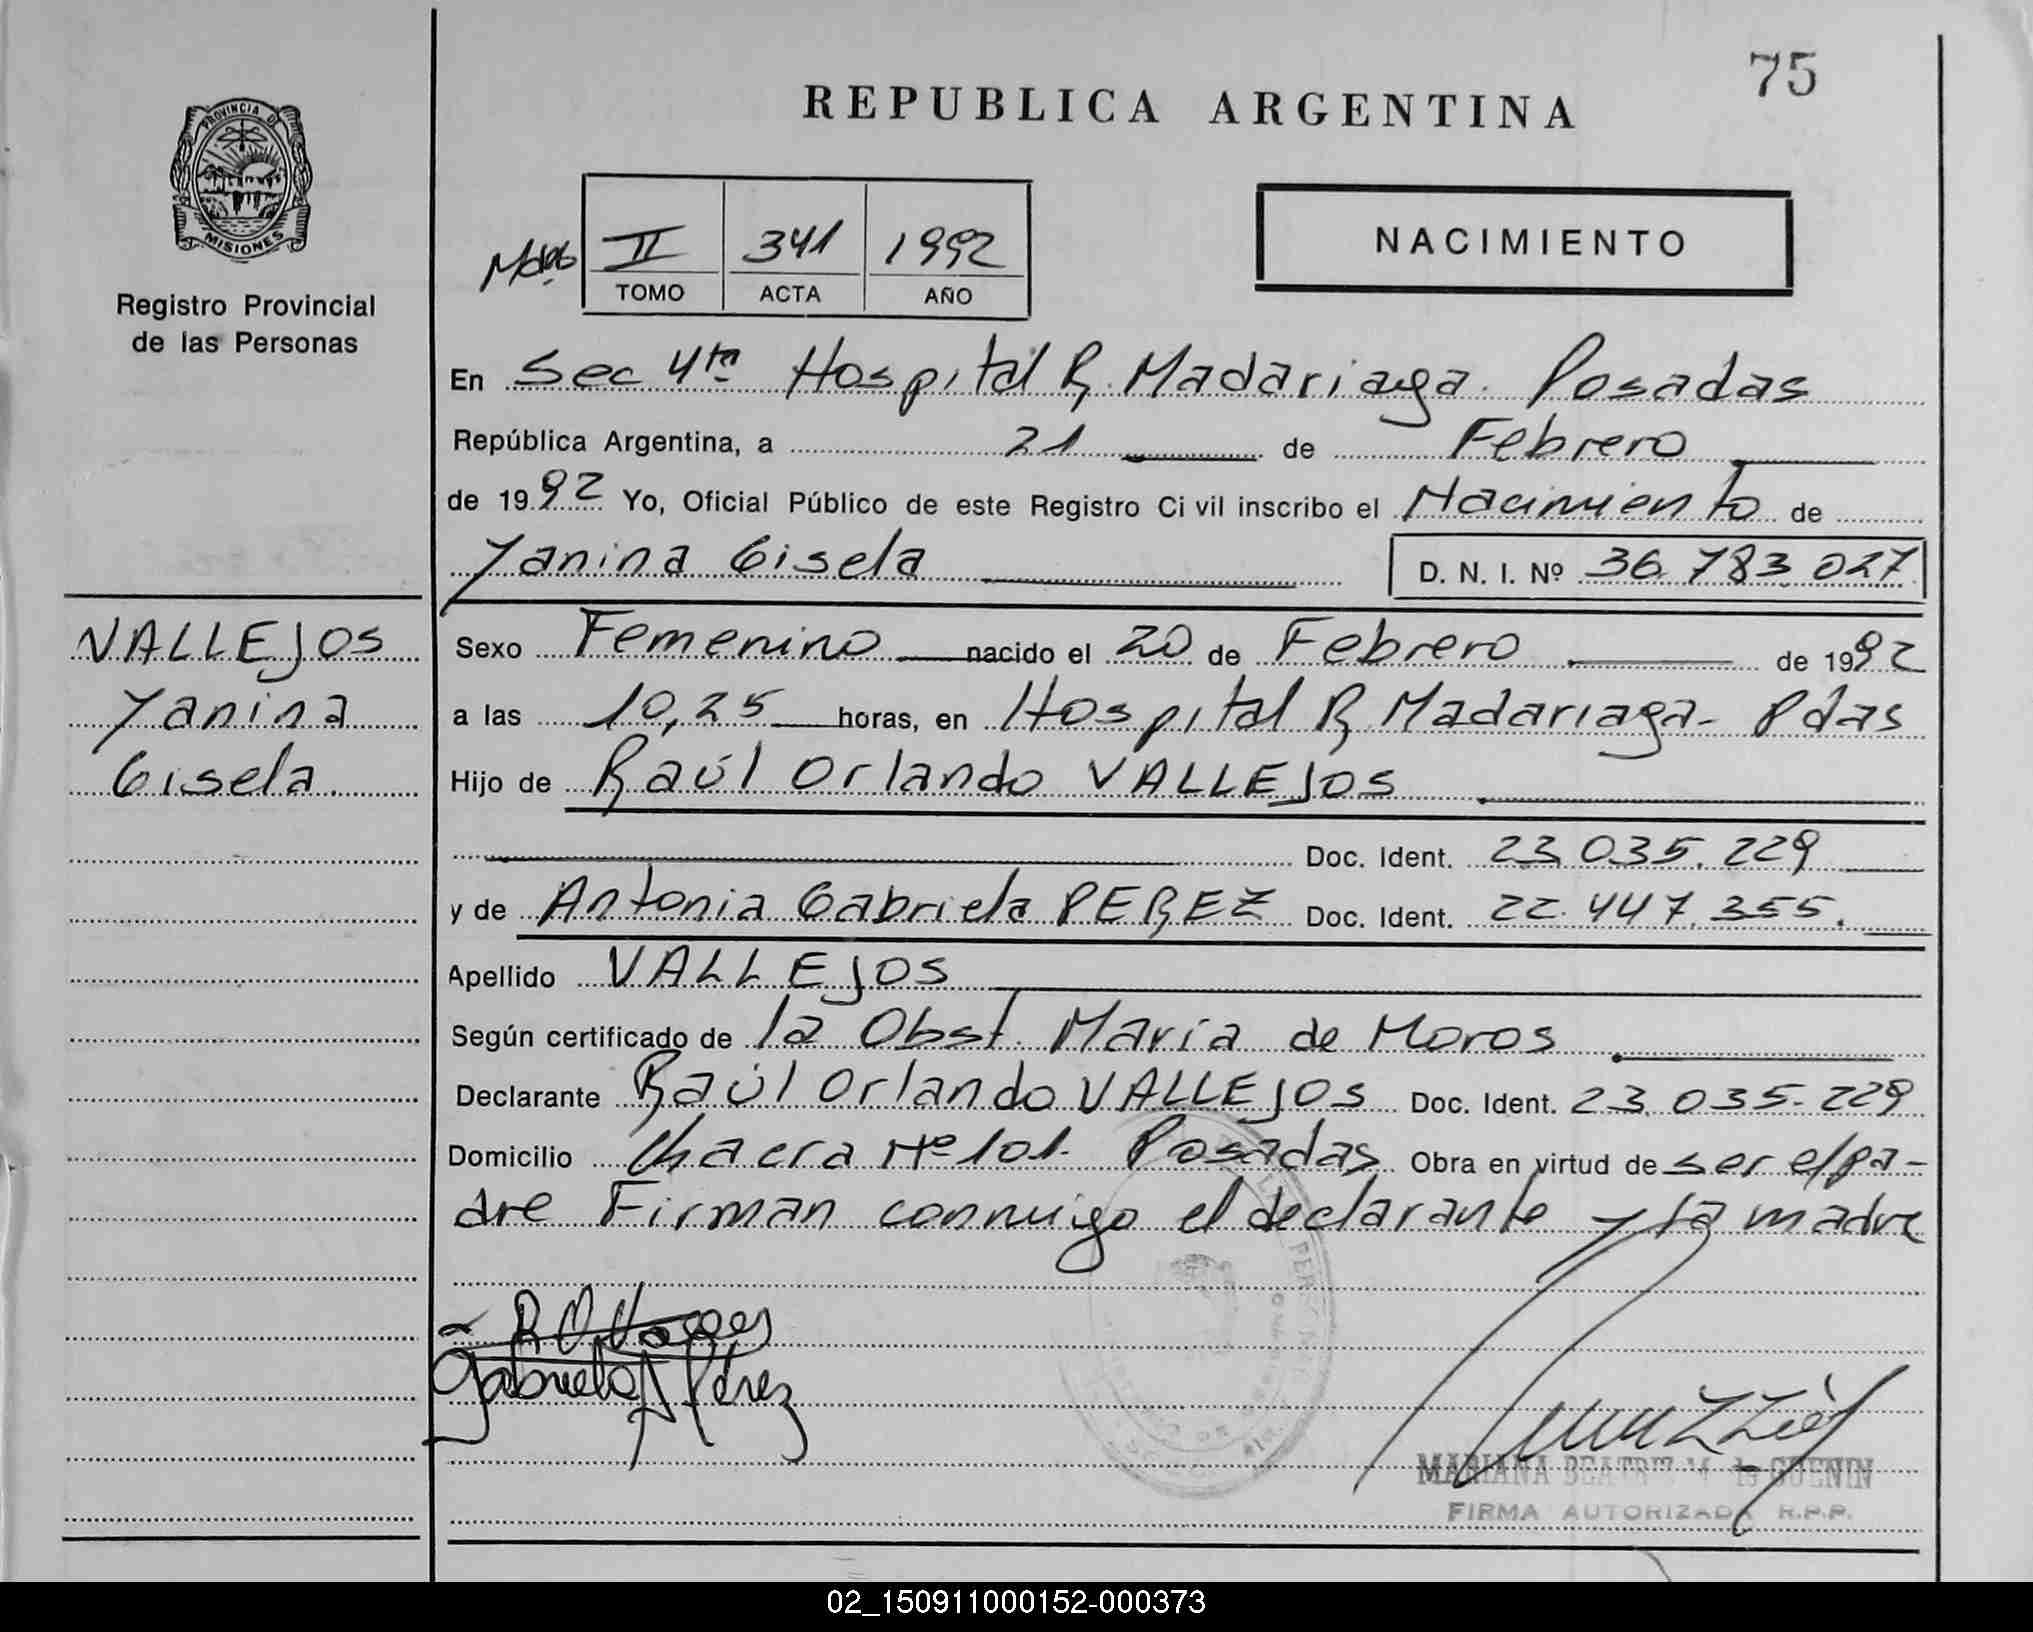 75
REPUBLICA ARGENTINA
PROVINCIA DE
MISIONES
Registro Provincial
de las Personas
II 341 1992
TOMO ACTA AÑO
NACIMIENTO
En Sec 4ta Hospital R. Madariaga. Posadas
República Argentina, a 21 de Febrero
de 1992 Yo, Oficial Público de este Registro Civil inscribo el Nacimiento de
Yanina Gisela D. N. I. Nº 36.783.027
VALLEJOS
Yanina
Gisela
Sexo Femenino nacido el 20 de Febrero de 1992
a las 10,25 horas, en Hospital R. Madariaga - Pdas
Hijo de Raúl Orlando VALLEJOS
Doc. Ident. 23.035.229
y de Antonia Gabriela PEREZ Doc. Ident. 22.447.355.
Apellido VALLEJOS
Según certificado de la Obst. María de Moros
Declarante Raúl Orlando VALLEJOS Doc. Ident. 23.035.229
Domicilio Chacra Nº 101. Posadas Obra en virtud de ser el pa-
dre Firman conmigo el declarante y la madre
Gabriela A Pérez
MARIANA BEATRIZ M. de GUENIN
FIRMA AUTORIZADA R.P.P.
02_150911000152-000373